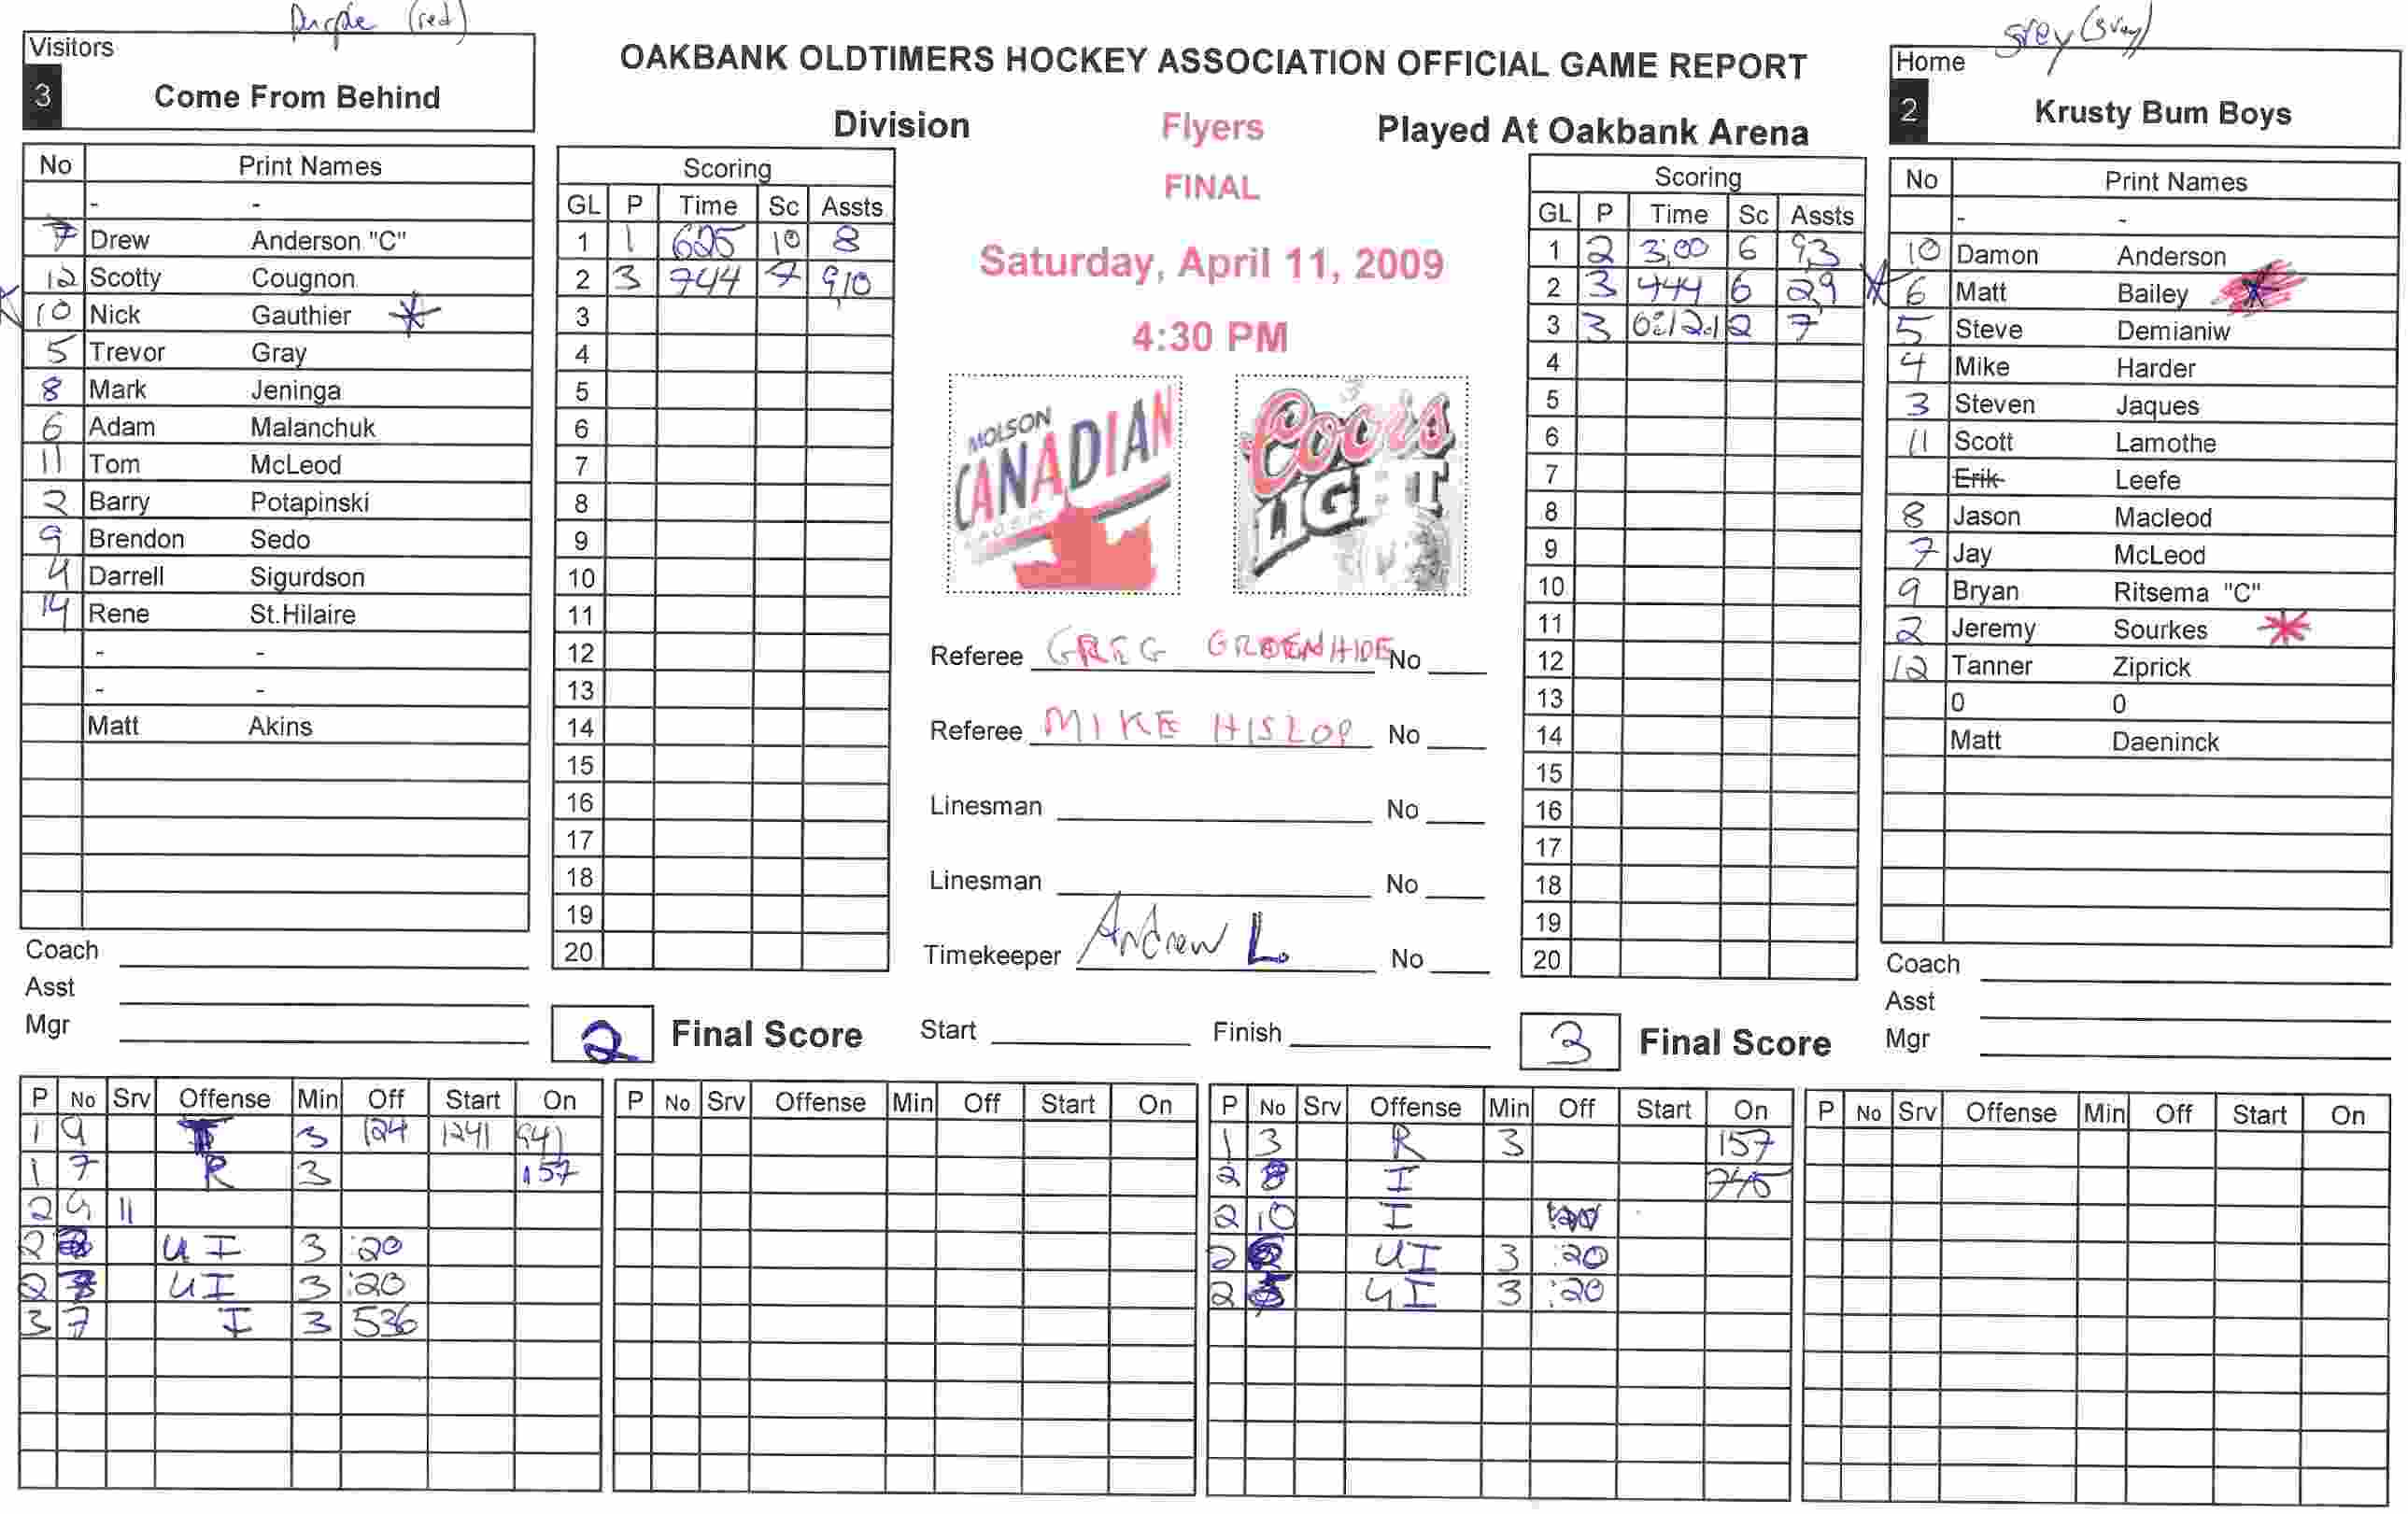 Purple (red)
grey (gray)
Visitors
3 Come From Behind
OAKBANK OLDTIMERS HOCKEY ASSOCIATION OFFICIAL GAME REPORT
Home
2 Krusty Bum Boys
Division Flyers Played At Oakbank Arena
FINAL
Saturday, April 11, 2009
4:30 PM
No Print Names
- -
7 Drew Anderson "C"
12 Scotty Cougnon
10 Nick Gauthier *
5 Trevor Gray
8 Mark Jeninga
6 Adam Malanchuk
11 Tom McLeod
2 Barry Potapinski
9 Brendon Sedo
4 Darrell Sigurdson
14 Rene St.Hilaire
- -
- -
Matt Akins
Coach
Asst
Mgr
Scoring
GL P Time Sc Assts
1 1 625 10 8
2 3 744 7 9,10
3
4
5
6
7
8
9
10
11
12
13
14
15
16
17
18
19
20
2 Final Score
MOLSON
CANADIAN
Coors
LIGHT
Referee GREG GROENHIDE No
Referee MIKE HISLOP No
Linesman No
Linesman No
Timekeeper Andrew L. No
Start Finish
Scoring
GL P Time Sc Assts
1 2 3:00 6 9,3
2 3 444 6 2,9
3 3 0:12.1 2 7
4
5
6
7
8
9
10
11
12
13
14
15
16
17
18
19
20
3 Final Score
No Print Names
- -
10 Damon Anderson
6 Matt Bailey
5 Steve Demianiw
4 Mike Harder
3 Steven Jaques
11 Scott Lamothe
Erik Leefe
8 Jason Macleod
7 Jay McLeod
9 Bryan Ritsema "C"
2 Jeremy Sourkes *
12 Tanner Ziprick
0 0
Matt Daeninck
Coach
Asst
Mgr
P No Srv Offense Min Off Start On
1 9 3 124 1241 941
1 7 R 3 157
2 9 11
2 UI 3 :20
2 UI 3 :20
3 7 I 3 536
P No Srv Offense Min Off Start On
P No Srv Offense Min Off Start On
1 3 R 3 157
2 8 I 745
2 10 I
2 UI 3 :20
2 UI 3 :20
P No Srv Offense Min Off Start On